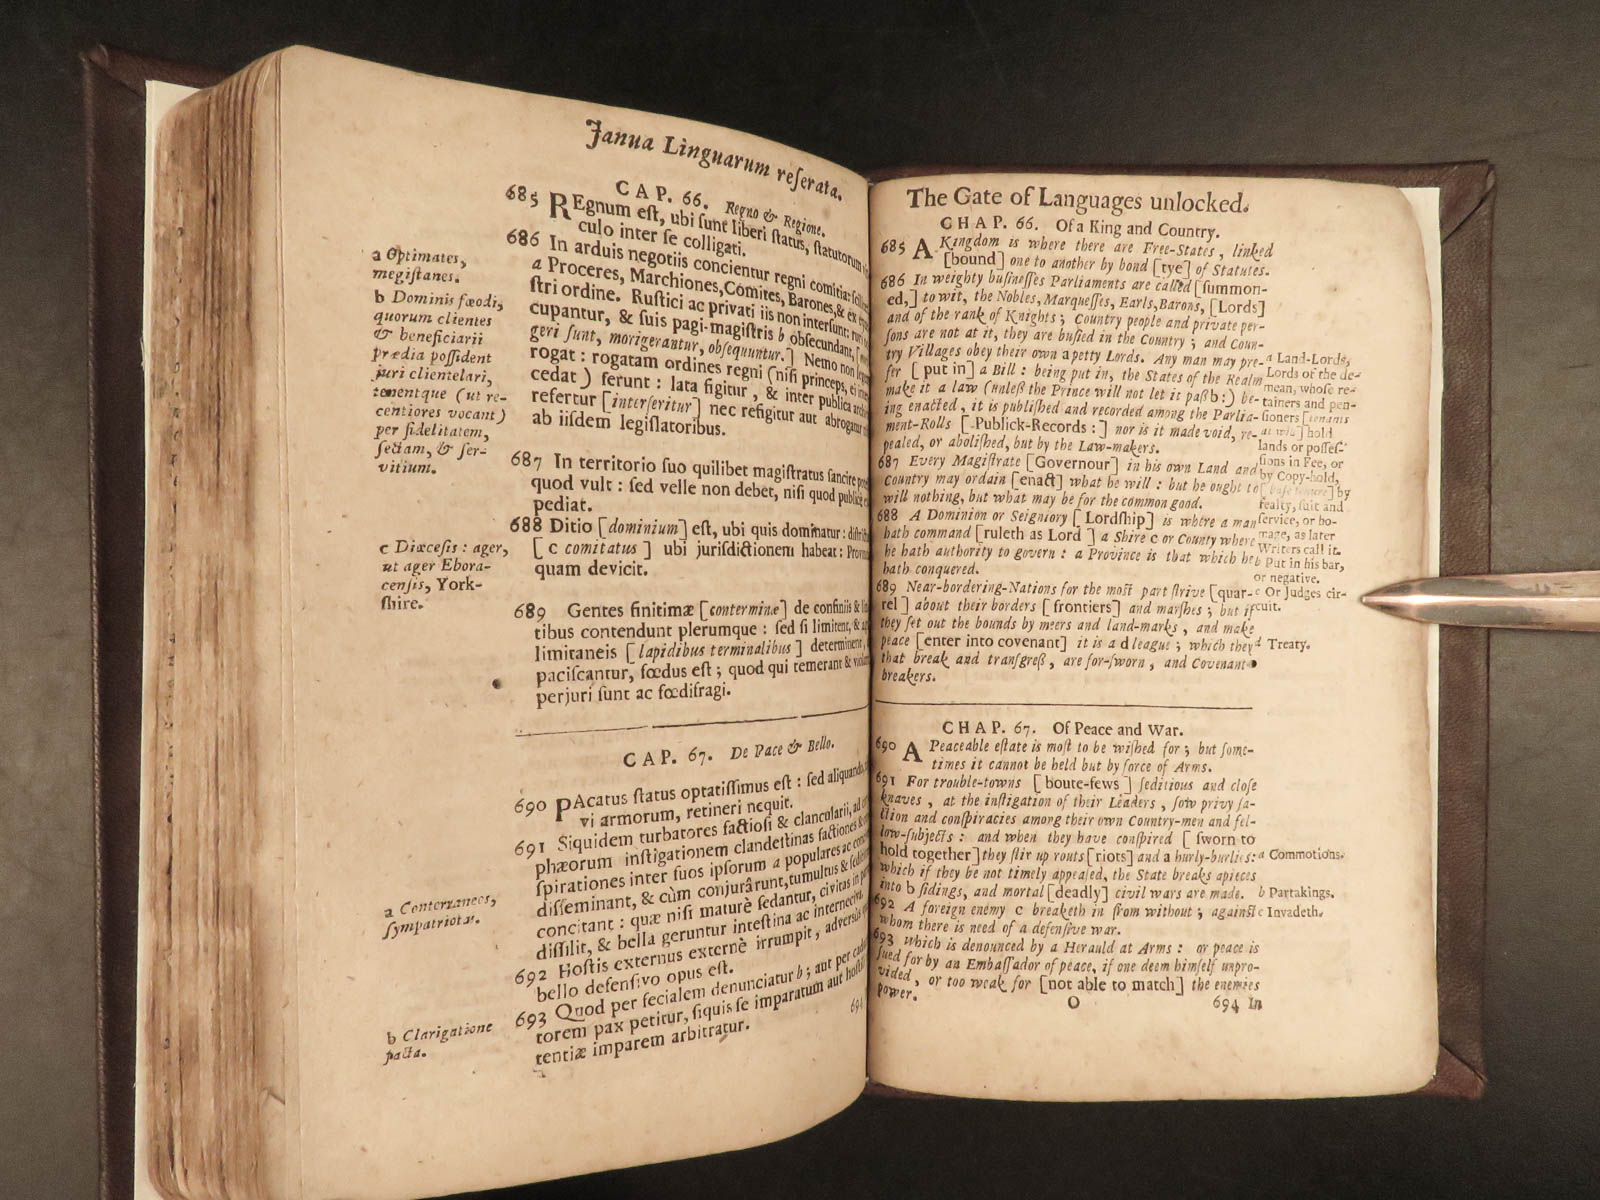 Janua Linguarum reſerata.
CAP. 66. Regno & Regione.
685 REgnum eſt, ubi ſunt liberi ſtatus, ſtatutorum
culo inter ſe colligati.
686 In arduis negotiis concientur regni comitia:
a Proceres, Marchiones, Comites, Barones, & ex
ſtri ordine. Ruſtici ac privati iis non interſunt:
cupantur, & ſuis pagi-magiſtris b obſecundant,
geri ſunt, morigerantur, obſequuntur.] Nemo non
rogat: rogatam ordines regni (niſi princeps,
cedat) ferunt: lata figitur, & inter publica
refertur [interſeritur] nec refigitur aut abrogatur
ab iiſdem legiſlatoribus.
687 In territorio ſuo quilibet magiſtratus ſancire
quod vult: ſed velle non debet, niſi quod
pediat.
688 Ditio [dominium] eſt, ubi quis dominatur:
[c comitatus] ubi juriſdictionem habeat:
quam devicit.
689 Gentes finitimæ [conterminæ] de confiniis &
tibus contendunt plerumque: ſed ſi limitent, &
limitaneis [lapidibus terminalibus] determinent,
paciſcantur, fœdus eſt; quod qui temerant &
perjuri ſunt ac fœdifragi.
a Optimates,
megiſtanes.
b Dominis fæodi,
quorum clientes
& beneficiarii
prædia poſſident
juri clientelari,
tenentque (ut re-
centiores vocant)
per fidelitatem,
ſectam, & ſer-
vitium.
c Diœceſis: ager,
ut ager Ebora-
cenſis, York-
ſhire.
CAP. 67. De Pace & Bello.
690 PAcatus ſtatus optatiſſimus eſt: ſed aliquando,
vi armorum, retineri nequit.
691 Siquidem turbatores factioſi & clancularii,
phæorum inſtigationem clandeſtinas factiones &
ſpirationes inter ſuos ipſorum a populares ac
diſſeminant, & cùm conjurârunt, tumultus &
concitant: quæ niſi maturè ſedantur, civitas in
diſſilit, & bella geruntur inteſtina ac interneciva.
692 Hoſtis externus externè irrumpit, adverſus
bello defenſivo opus eſt.
693 Quod per fecialem denunciatur b; aut per
torem pax petitur, ſiquis ſe imparatum aut
tentiæ imparem arbitratur.
694
a Conterraneos,
ſympatriotas.
b Clarigatione
facta.
The Gate of Languages unlocked.
CHAP. 66. Of a King and Country.
685 A Kingdom is where there are Free-States, linked
[bound] one to another by bond [tye] of Statutes.
686 In weighty buſineſſes Parliaments are called [ſummon-
ed,] to wit, the Nobles, Marqueſſes, Earls, Barons, [Lords]
and of the rank of Knights; Country people and private per-
ſons are not at it, they are buſied in the Country; and Coun-
try Villages obey their own a petty Lords. Any man may pre-
fer [put in] a Bill: being put in, the States of the Realm
make it a law (unleſs the Prince will not let it paſs b:) be-
ing enacted, it is publiſhed and recorded among the Parlia-
ment-Rolls [Publick-Records:] nor is it made void, re-
pealed, or aboliſhed, but by the Law-makers.
687 Every Magiſtrate [Governour] in his own Land and
Country may ordain [enact] what he will: but he ought to
will nothing, but what may be for the common good.
688 A Dominion or Seigniory [Lordſhip] is where a man
hath command [ruleth as Lord] a Shire c or County where
he hath authority to govern: a Province is that which he
hath conquered.
689 Near-bordering-Nations for the moſt part ſtrive [quar-
rel] about their borders [frontiers] and marſhes; but if
they ſet out the bounds by meers and land-marks, and make
peace [enter into covenant] it is a d league; which they
that break and tranſgreſs, are for-ſworn, and Covenant
breakers.
a Land-Lords,
Lords of the de-
mean, whoſe re-
tainers and pen-
ſioners [tenants
at will] hold
lands or poſſeſ-
ſions in Fee, or
by Copy-hold,
[baſe tenure] by
fealty, ſuit and
ſervice, or ho-
mage, as later
Writers call it.
b Put in his bar,
or negative.
c Or Judges cir-
cuit.
d Treaty.
CHAP. 67. Of Peace and War.
690 A Peaceable eſtate is moſt to be wiſhed for; but ſome-
times it cannot be held but by force of Arms.
691 For trouble-towns [boute-fews] ſeditious and cloſe
knaves, at the inſtigation of their Leaders, ſow privy fa-
ction and conſpiracies among their own Country-men and fel-
low-ſubjects: and when they have conſpired [ſworn to
hold together] they ſtir up routs [riots] and a hurly-burlies:
which if they be not timely appeaſed, the State breaks apieces
into b ſidings, and mortal [deadly] civil wars are made.
692 A foreign enemy c breaketh in from without; againſt
whom there is need of a defenſive war.
693 Which is denounced by a Herauld at Arms: or peace is
ſued for by an Embaſſador of peace, if one deem himſelf unpro-
vided, or too weak for [not able to match] the enemies
power.
a Commotions.
b Partakings.
c Invadeth.
O
694 In